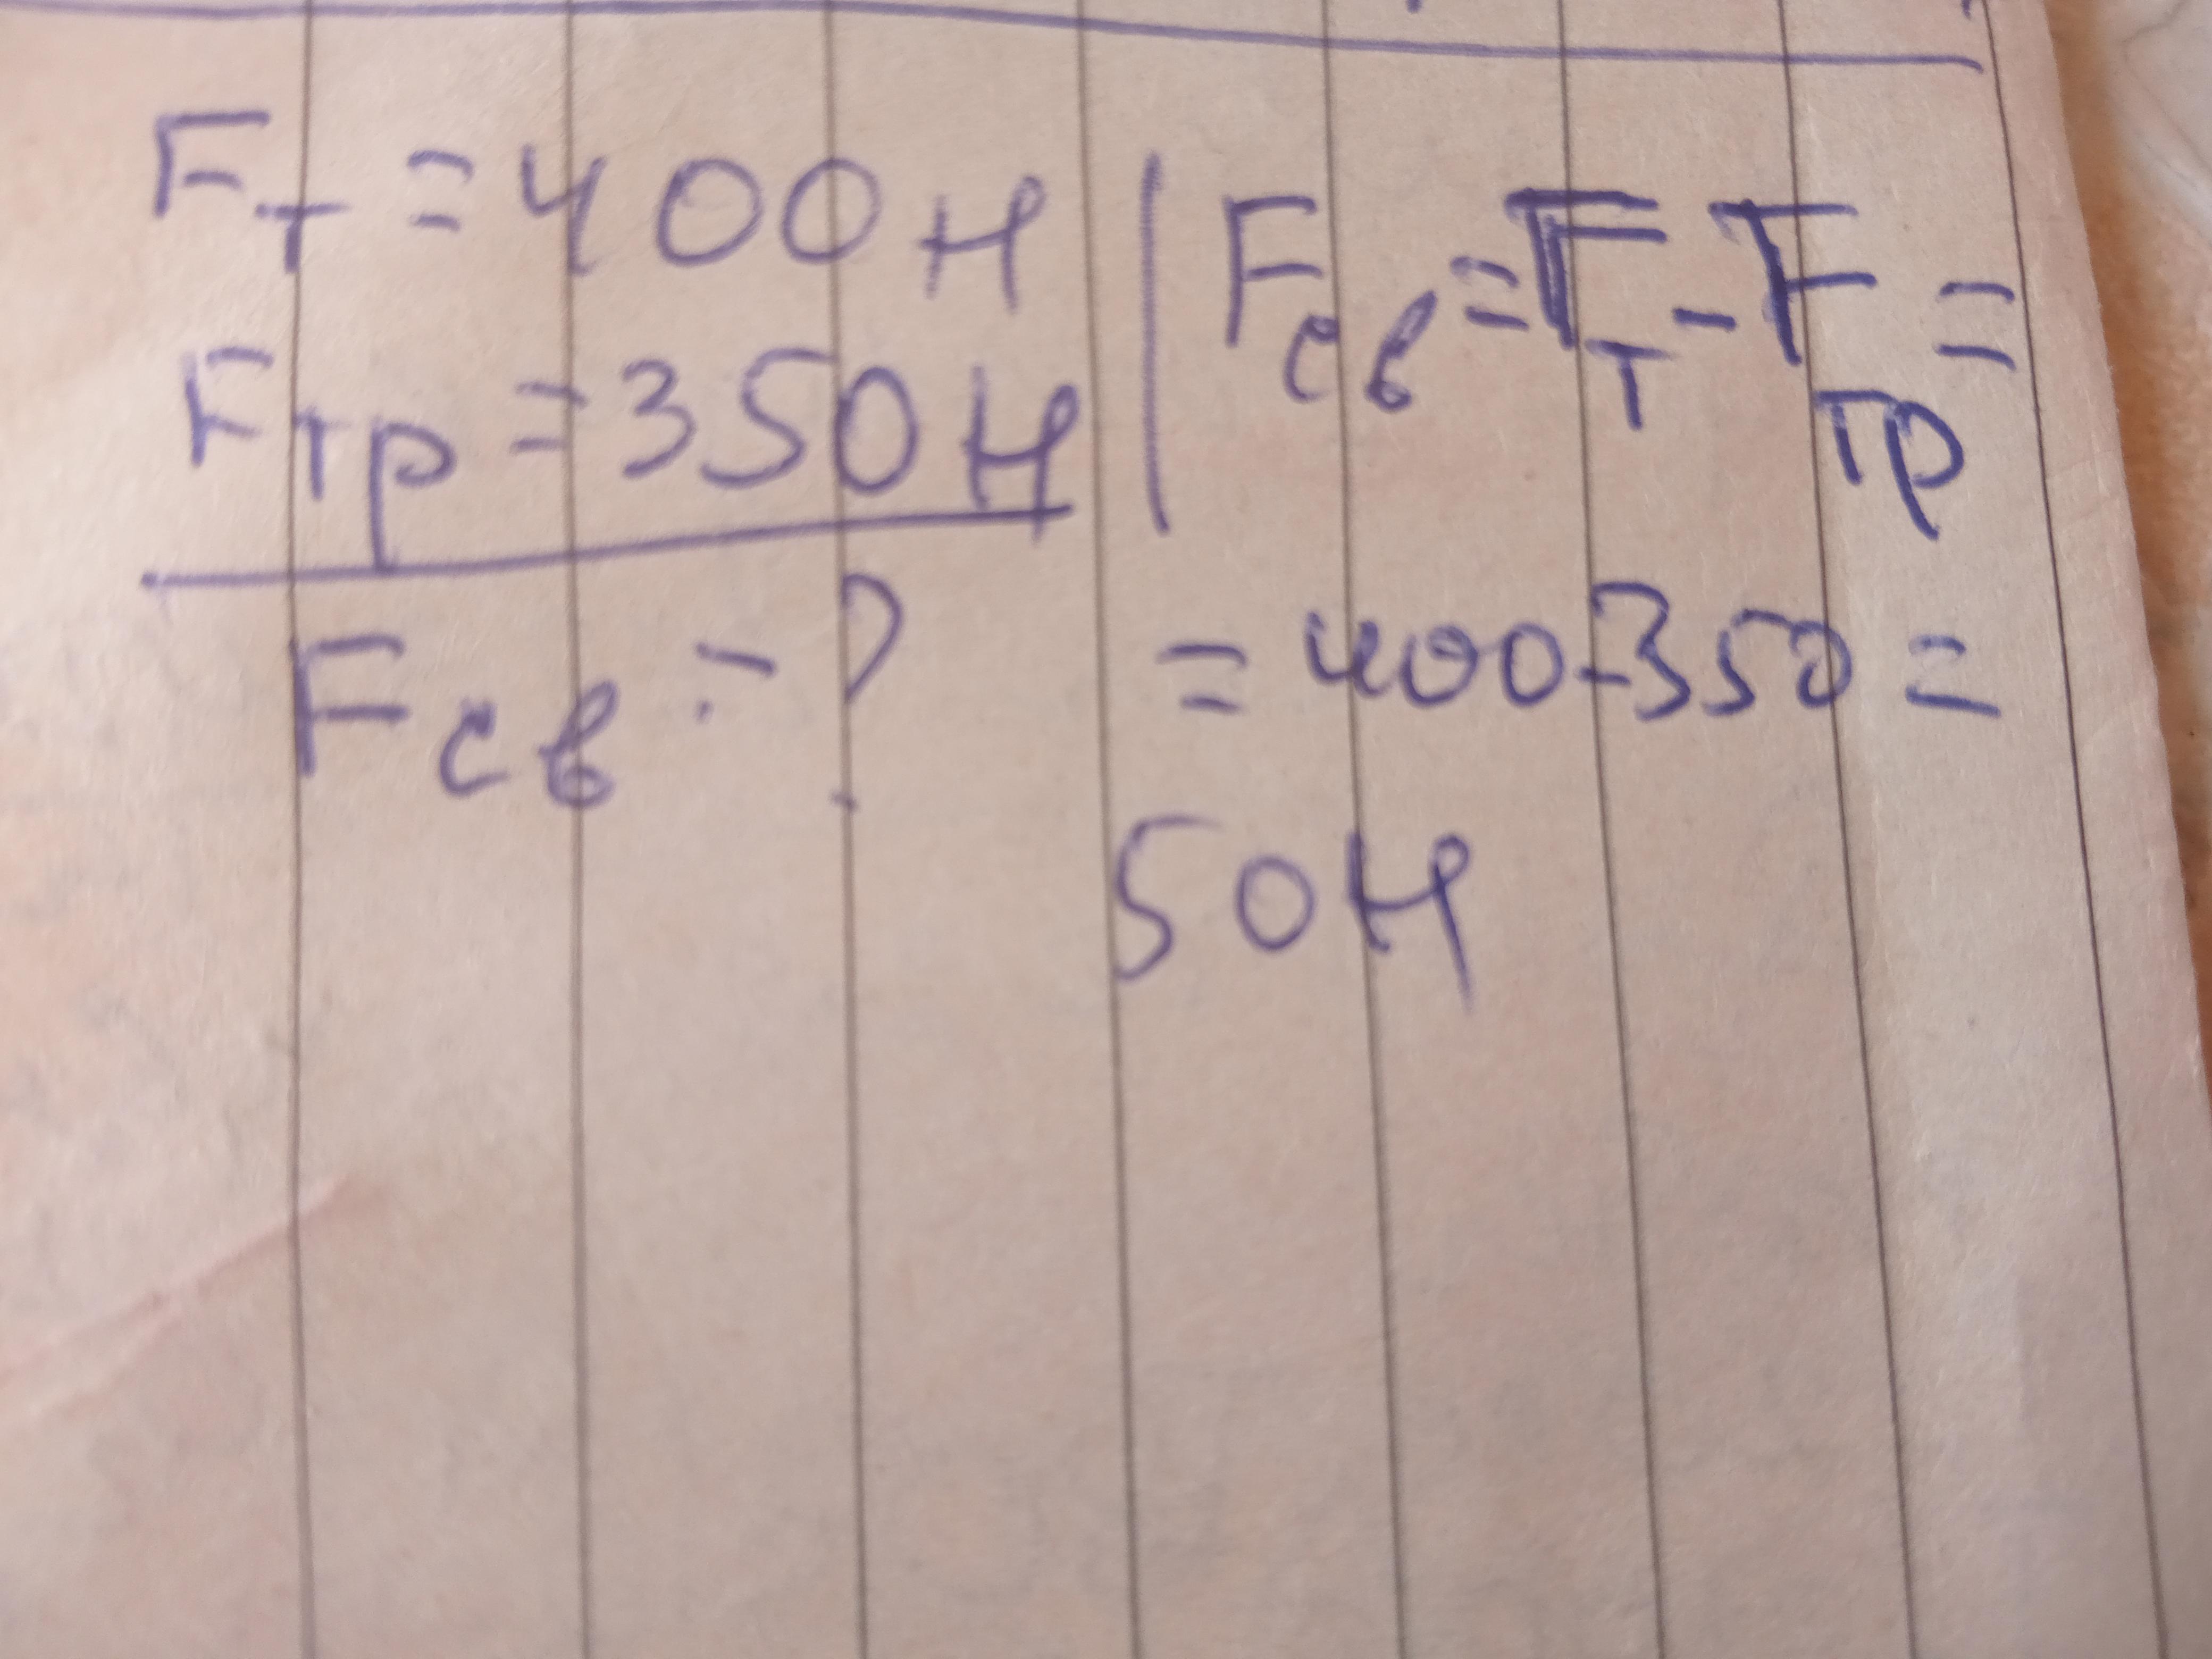 Fт = 400н
Fтр = 350н
Fсв - ?
Fсв = Fт - Fтр =
= 400-350 =
50н